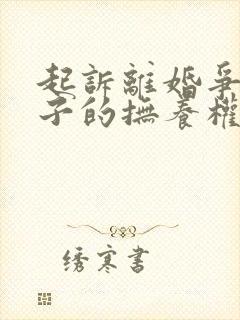 起訴離婚爭
子的撫養權
绣寒書